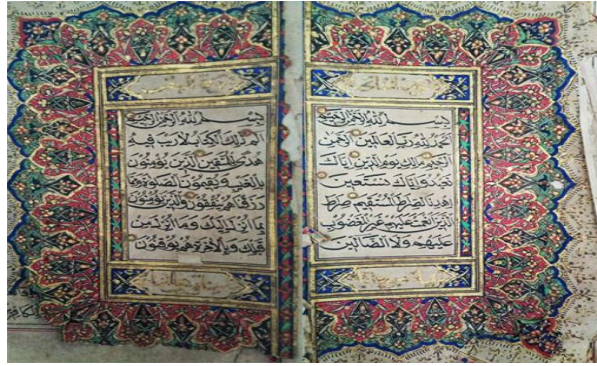 بسم الله الرحمن الرحيم
الحمد لله رب العالمين الرحمن
الرحيم مالك يوم الدين اياك
نعبد واياك نستعين
اهدنا الصراط المستقيم صراط
الذين انعمت عليهم غير المغضوب
عليهم ولا الضالين
بسم الله الرحمن الرحيم
الم ذلك الكتاب لا ريب فيه
هدى للمتقين الذين يؤمنون
بالغيب ويقيمون الصلوة ومما
رزقناهم ينفقون والذين يؤمنون
بما انزل اليك وما انزل من
قبلك وبالاخرة هم يوقنون